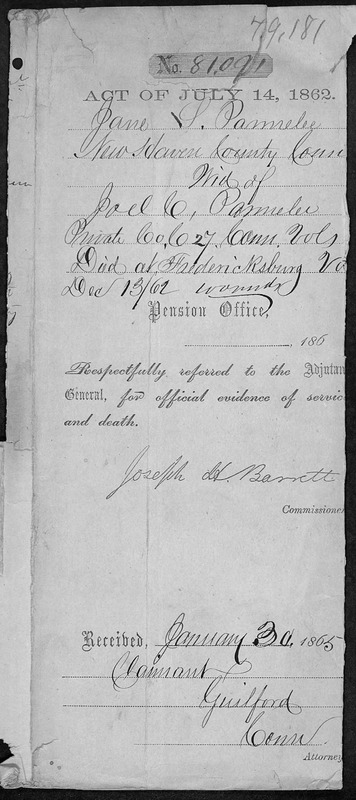 79,181
No. 81,091
ACT OF JULY 14, 1862.
Jane S. Parmelee
New Haven County Conn
Wid of
Joel C, Parmelee
Private Co, C 27, Conn, Vols
Died at Fredericksburg Va
Dec 13/62 wounds
Pension Office,
, 186
Respectfully referred to the Adjutan
General, for official evidence of servic
and death.
Joseph H. Barrett
Commissioner
Received, January 3d, 1865
Claimant
Guilford
Conn.
Attorney